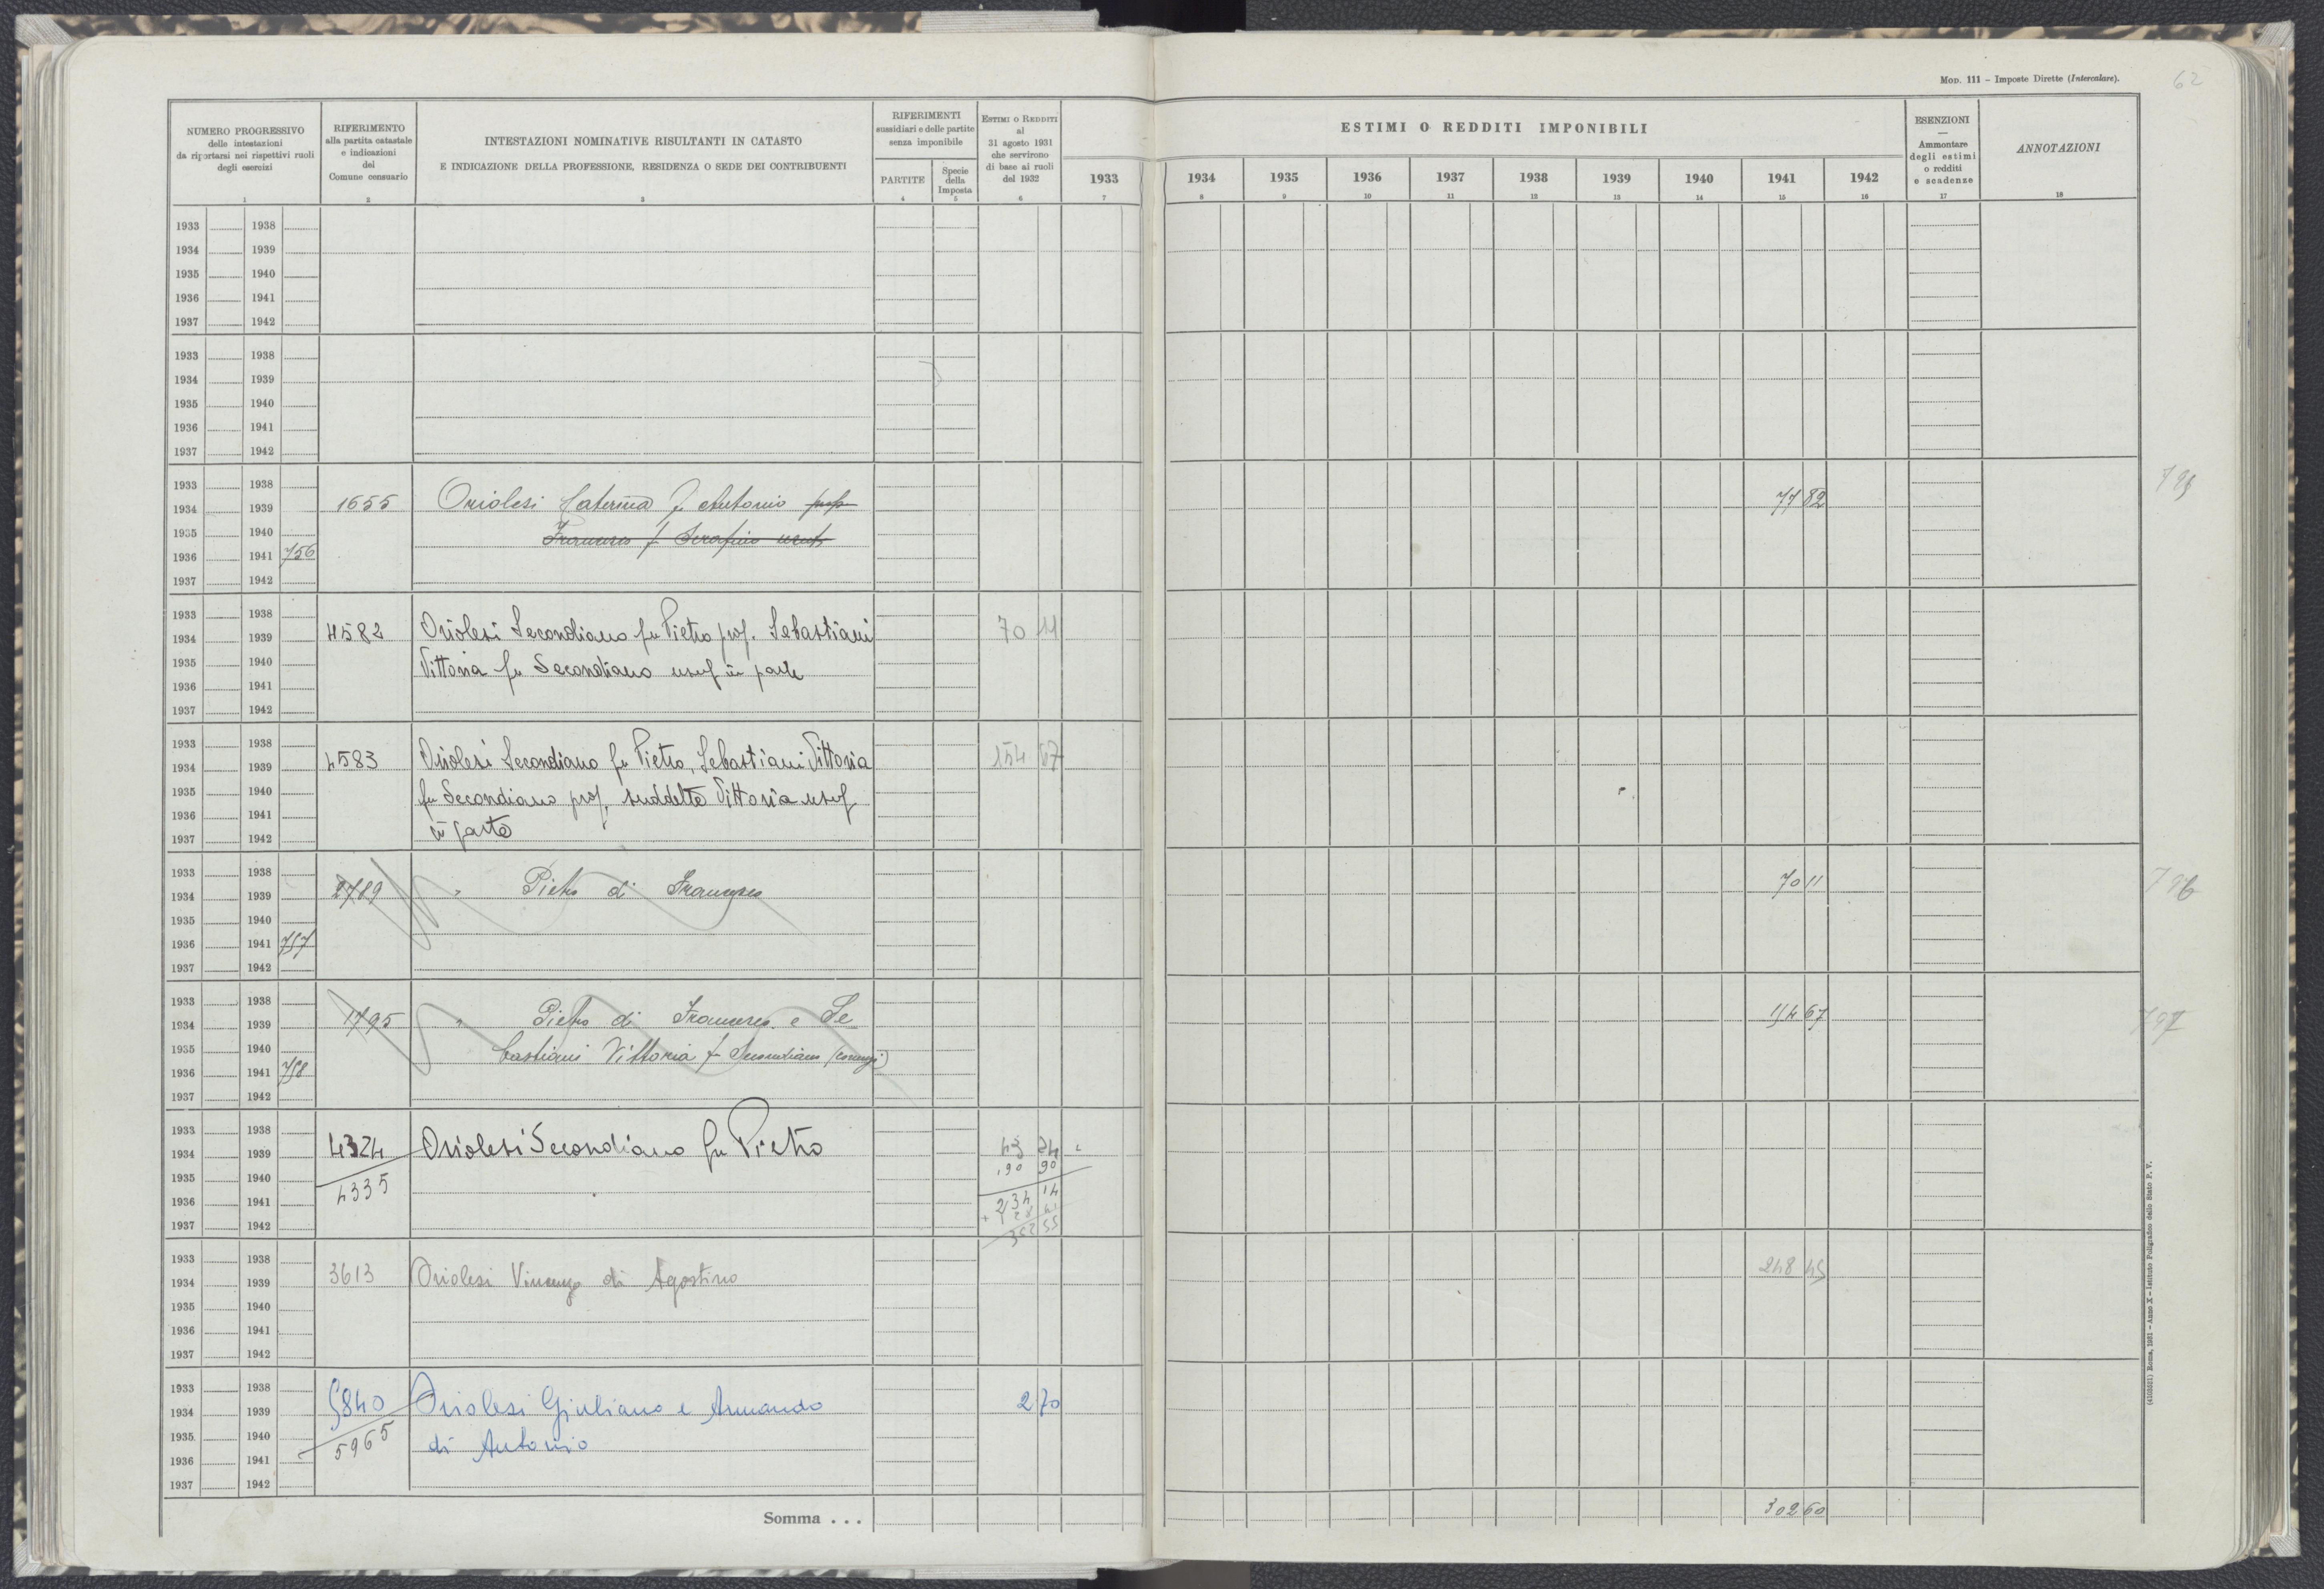 MOD. 111 – Imposte Dirette (Intercalare).
62
NUMERO PROGRESSIVO
delle intestazioni
da riportarsi nei rispettivi ruoli
degli esercizi
1
RIFERIMENTO
alla partita catastale
e indicazioni
del
Comune censuario
2
INTESTAZIONI NOMINATIVE RISULTANTI IN CATASTO
E INDICAZIONE DELLA PROFESSIONE, RESIDENZA O SEDE DEI CONTRIBUENTI
3
RIFERIMENTI
sussidiari e delle partite
senza imponibile
PARTITE
4
Specie
della
Imposta
5
ESTIMI O REDDITI
al
31 agosto 1931
che servirono
di base ai ruoli
del 1932
6
1933
7
ESTIMI O REDDITI IMPONIBILI
1934 1935 1936 1937 1938 1939 1940 1941 1942
8 9 10 11 12 13 14 15 16
ESENZIONI
—
Ammontare
degli estimi
o redditi
e scadenze
17
ANNOTAZIONI
18
1933 1938
1934 1939
1935 1940
1936 1941
1937 1942
1933 1938
1934 1939
1935 1940
1936 1941
1937 1942
1933 1938
1934 1939 1655 Oriolesi Caterina f. Antonio prop 77 82
1935 1940 Francesco f Serafino usuf
1936 1941 756
1937 1942
1933 1938
1934 1939 4582 Oriolesi Secondiano fu Pietro prof. Sebastiani 70 11
1935 1940 Vittoria fu Secondiano usuf in parte
1936 1941
1937 1942
1933 1938
1934 1939 4583 Oriolesi Secondiano fu Pietro, Sebastiani Vittoria 154 67
1935 1940 fu Secondiano prof, suddetta Vittoria usuf
1936 1941
1937 1942 in parte
1933 1938
1934 1939 2789 " Pietro di Francesco 70 11 796
1935 1940
1936 1941 757
1937 1942
1933 1938
1934 1939 1795 " Pietro di Francesco e Se 154 67 797
1935 1940 bastiani Vittoria f Secondiano (coniugi)
1936 1941 758
1937 1942
1933 1938
1934 1939 4324 Oriolesi Secondiano fu Pietro 43 24
190 90
1935 1940 4335
1936 1941 234 14
1937 1942
1933 1938
1934 1939 3613 Oriolesi Vincenzo di Agostino 248 45
1935 1940
1936 1941
1937 1942
1933 1938
1934 1939 5840 Oriolesi Giuliano e Armando 2 70
1935 1940 5965 di Antonio
1936 1941
1937 1942
Somma . . . 302 60
(4103881) Roma, 1931 – Anno X – Istituto Poligrafico dello Stato P. V.